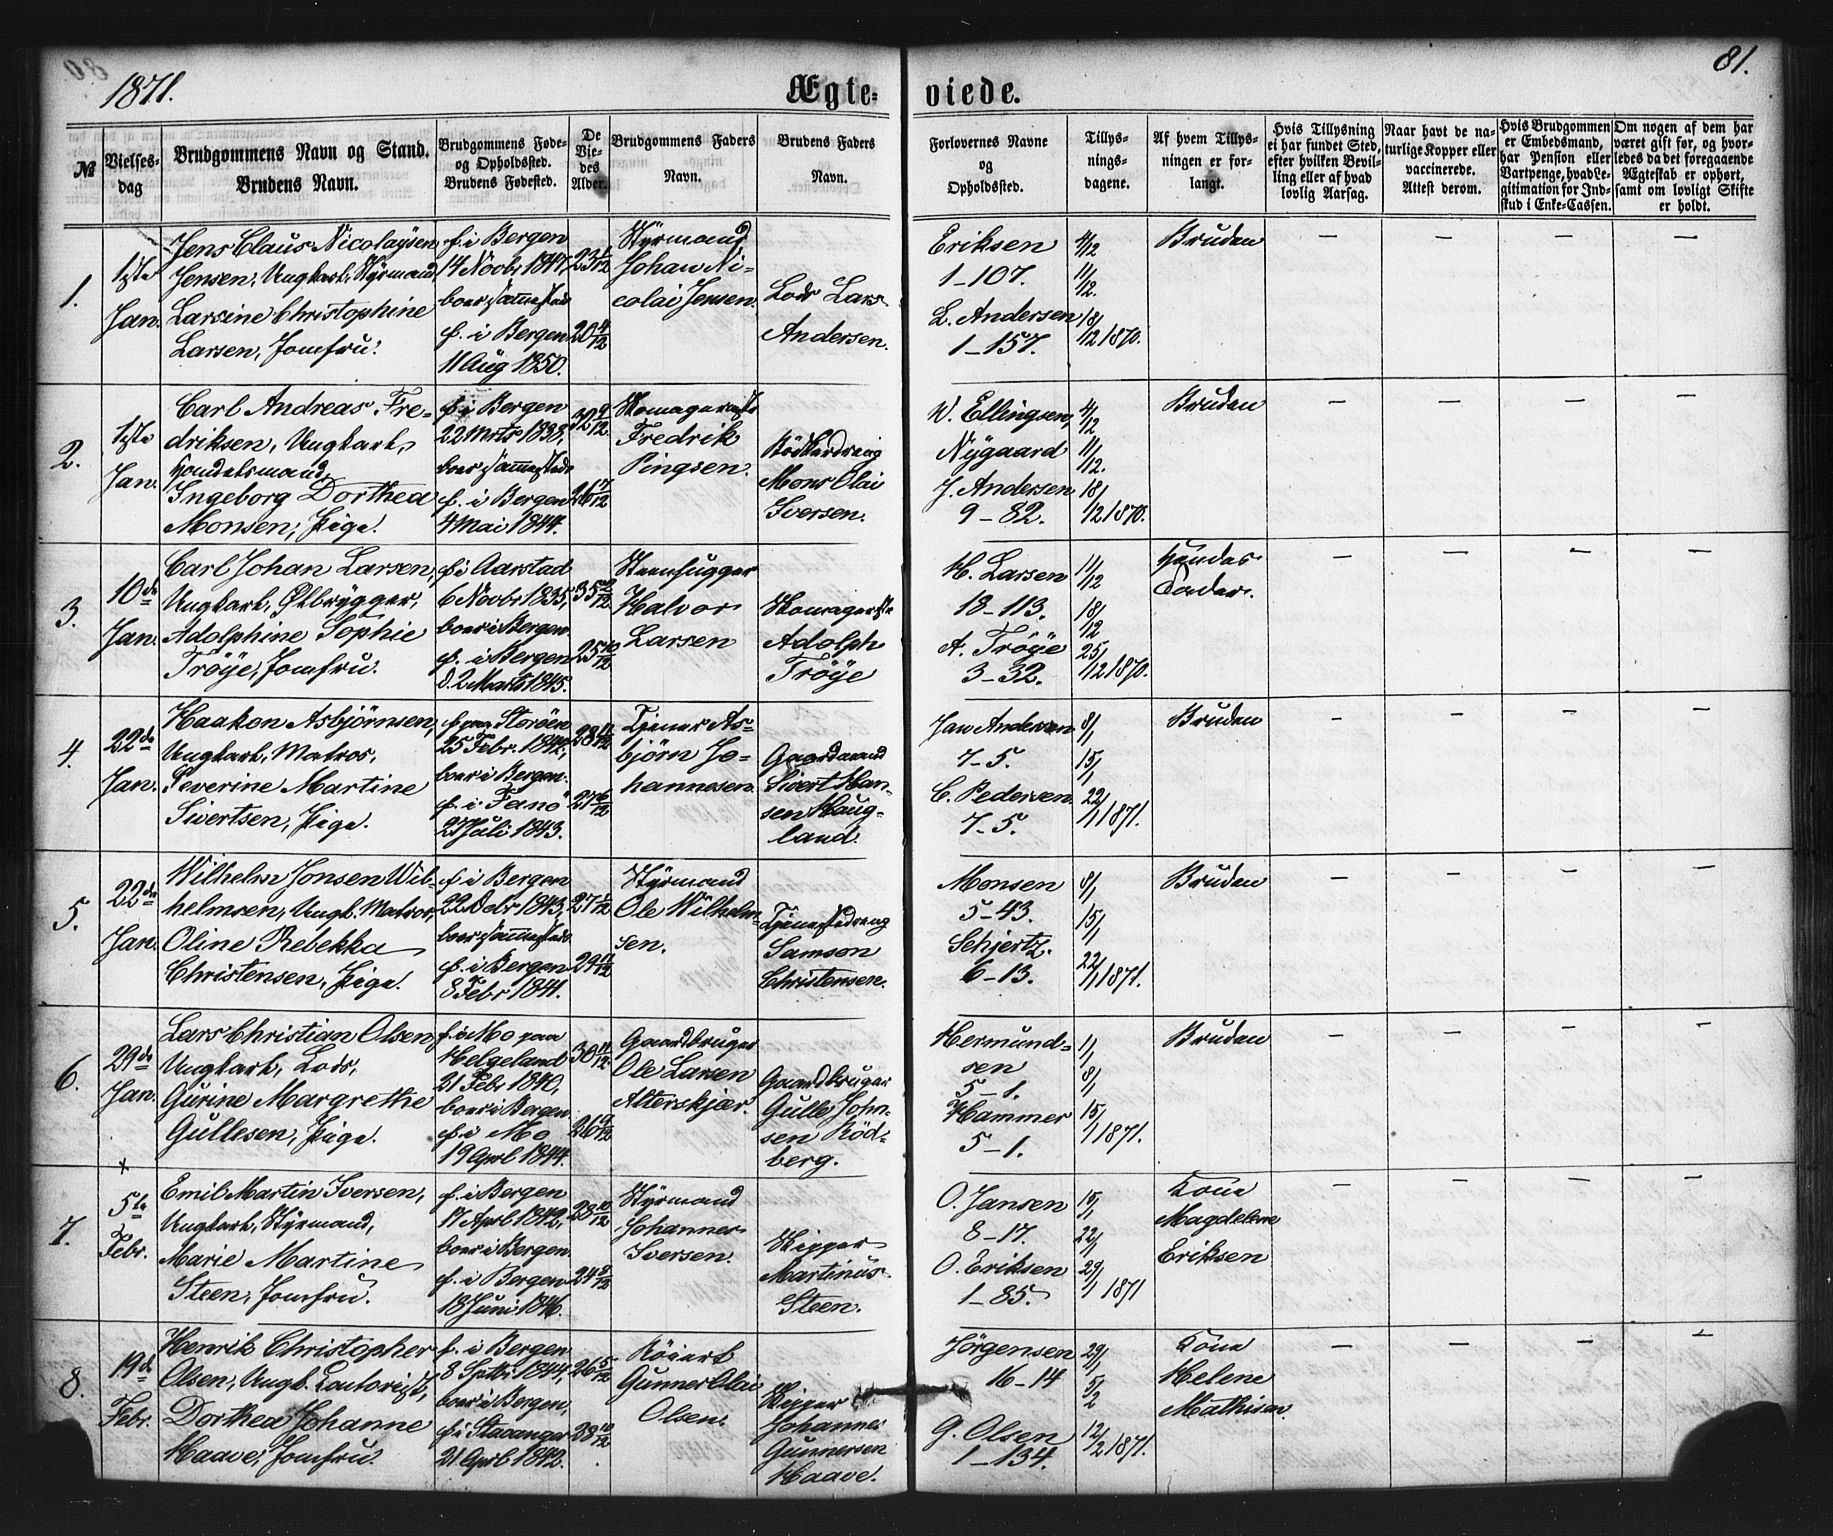 1871.
Ægte-
viede.
81.
№
Vielses-
dag
Brudgommens Navn og Stand.
Brudens Navn.
Brudgommens Føde-
og Opholdssted.
Brudens Fødested.
De
Vie-
des
Alder.
Brudgommens Faders
Navn.
Brudens Faders
Navn.
Forlovernes Navne
og
Opholdssted.
Tillys-
nings-
dagene.
Af hvem Tillys-
ningen er for-
langt.
Hvis Tillysning
ei har fundet Sted,
efter hvilken Bevil-
ling eller af hvad
lovlig Aarsag.
Naar havt de na-
turlige Kopper eller
vaccinerede.
Attest derom.
Hvis Brudgommen
er Embedsmand,
har Pension eller
Vartpenge, hvad Le-
gitimation for Ind-
skud i Enke-Cassen.
Om nogen af dem har
været gift før, og hvor-
ledes da det foregaaende
Ægteskab er ophørt,
samt om lovligt Skifte
er holdt.
1.
1ste
Jan.
Jens Claus Nicolaysen
Jensen, Ungkarl, Styrmand
Larsine Christophine
Larsen, Jomfru.
f. i Bergen
14 Novbr 1847,
boer sammesteds
f. i Bergen
11 Aug 1850.
23 1/12
20 4/12
Styrmand
Johan Ni-
colai Jensen.
Lods Lars
Andersen.
Eriksen
1-107.
L. Andersen
1-157.
4/12
11/12.
18/12 1870.
Bruden
— — — —
2.
1ste
Jan.
Carl Andreas Fre-
driksen, Ungkarl,
Handelsmand,
Ingeborg Dorthea
Monsen, Pige.
f. i Bergen
22 Mrts 1838,
boer sammesteds
f. i Bergen
4 Mai 1844.
32 9/12
26 7/12
Skomagermstr
Fredrik
Pingsen.
Mons Olai
Iversen.
W. Ellingsen,
Nygaard
J. Andersen
9-82.
4/12
11/12.
18/12 1870.
Bruden
— — — —
3.
10de
Jan.
Carl Johan Larsen,
Ungkarl, Ølbrygger,
Adolphine Sophie
Trøye, Jomfru.
f. i Aarstad
6 Novbr 1835,
boer i Bergen
f. i Bergen
d. 2 Marts 1845.
35 2/12
25 10/12
Steenhugger
Halvor
Larsen
Skomagermstr
Adolph
Trøye
H. Larsen
18-113.
A. Trøye
3-32.
11/12
18/12
25/12 1870.
Hendes
Fader.
— — — —
4.
22de
Jan.
Haakon Asbjørnsen,
Ungkarl, Matros,
Severine Martine
Sivertsen, Pige.
f. paa Storøen
25 Febr. 1842,
boer i Bergen.
f. i Fanø
27 Juli 1843.
28 11/12
27 6/12
Tjener As-
bjørn Jo-
hannesen.
Gaardmand
Sivert Han-
sen Haug-
land.
Jan Andersen
7-5.
C. Pedersen.
7-5.
8/1
15/1
22/1 1871.
Bruden
— — — —
5.
22de
Jan.
Wilhelm Jonsen Wil-
helmsen, Ungk. Matros,
Oline Rebekka
Christensen, Pige.
f. i Bergen
22 Debr 1843,
boer sammesteds
f. i Bergen
8 Febr 1841.
27 1/12
29 11/12
Styrmand
Ole Wilhelm-
sen.
Tjenestedreng
Samson
Christensen.
Monsen
5-43.
Schjertz.
6-13.
8/1
15/1
22/1 1871.
Bruden
— — — —
6.
29de
Jan.
Lars Christian Olsen,
Ungkarl, Lods,
Gurine Margrethe
Gullesen, Pige.
f. i Mo paa
Helgeland
21 Febr 1840,
boer i Bergen
f. i Mo
19 April 1844.
30 11/12
26 9/12
Gaardbruger
Ole Larsen
Alterskjær.
Gaardbruger
Gulle John-
sen Rød-
berg.
Hermund-
sen
5-1.
Hammer
5-1.
1/1
8/1
15/1 1871.
Bruden
— — — —
7.
5te
Febr.
Emil Martin Iversen,
Ungkarl, Styrmand,
Marie Martine
Steen, Jomfru.
f. i Bergen
17 April 1842,
boer i Bergen.
f. i Bergen
18 Juni 1846.
28 10/12
24 8/12
Styrmand
Johannes
Iversen.
Skipper
Martinus
Steen.
O. Jansen
8-17.
O. Eriksen
1-85.
15/1
22/1
29/1 1871
Magdelene
Eriksen
— — — —
8.
19de
Febr.
Henrik Christopher
Olsen, Ungk. Contorist,
Dorthea Johanne
Haave, Jomfru.
f. i Bergen
8 Septbr 1844,
boer i Bergen,
f. i Stavanger
21 April 1842.
26 5/12
28 10/12
Gunner Olai
Olsen.
Skipper
Johannes
Gunnersen
Haave.
Jørgensen
16-14
G. Olsen
1-134.
29/1
5/2
12/2 1871.
Helene
Mathisen.
— — — —